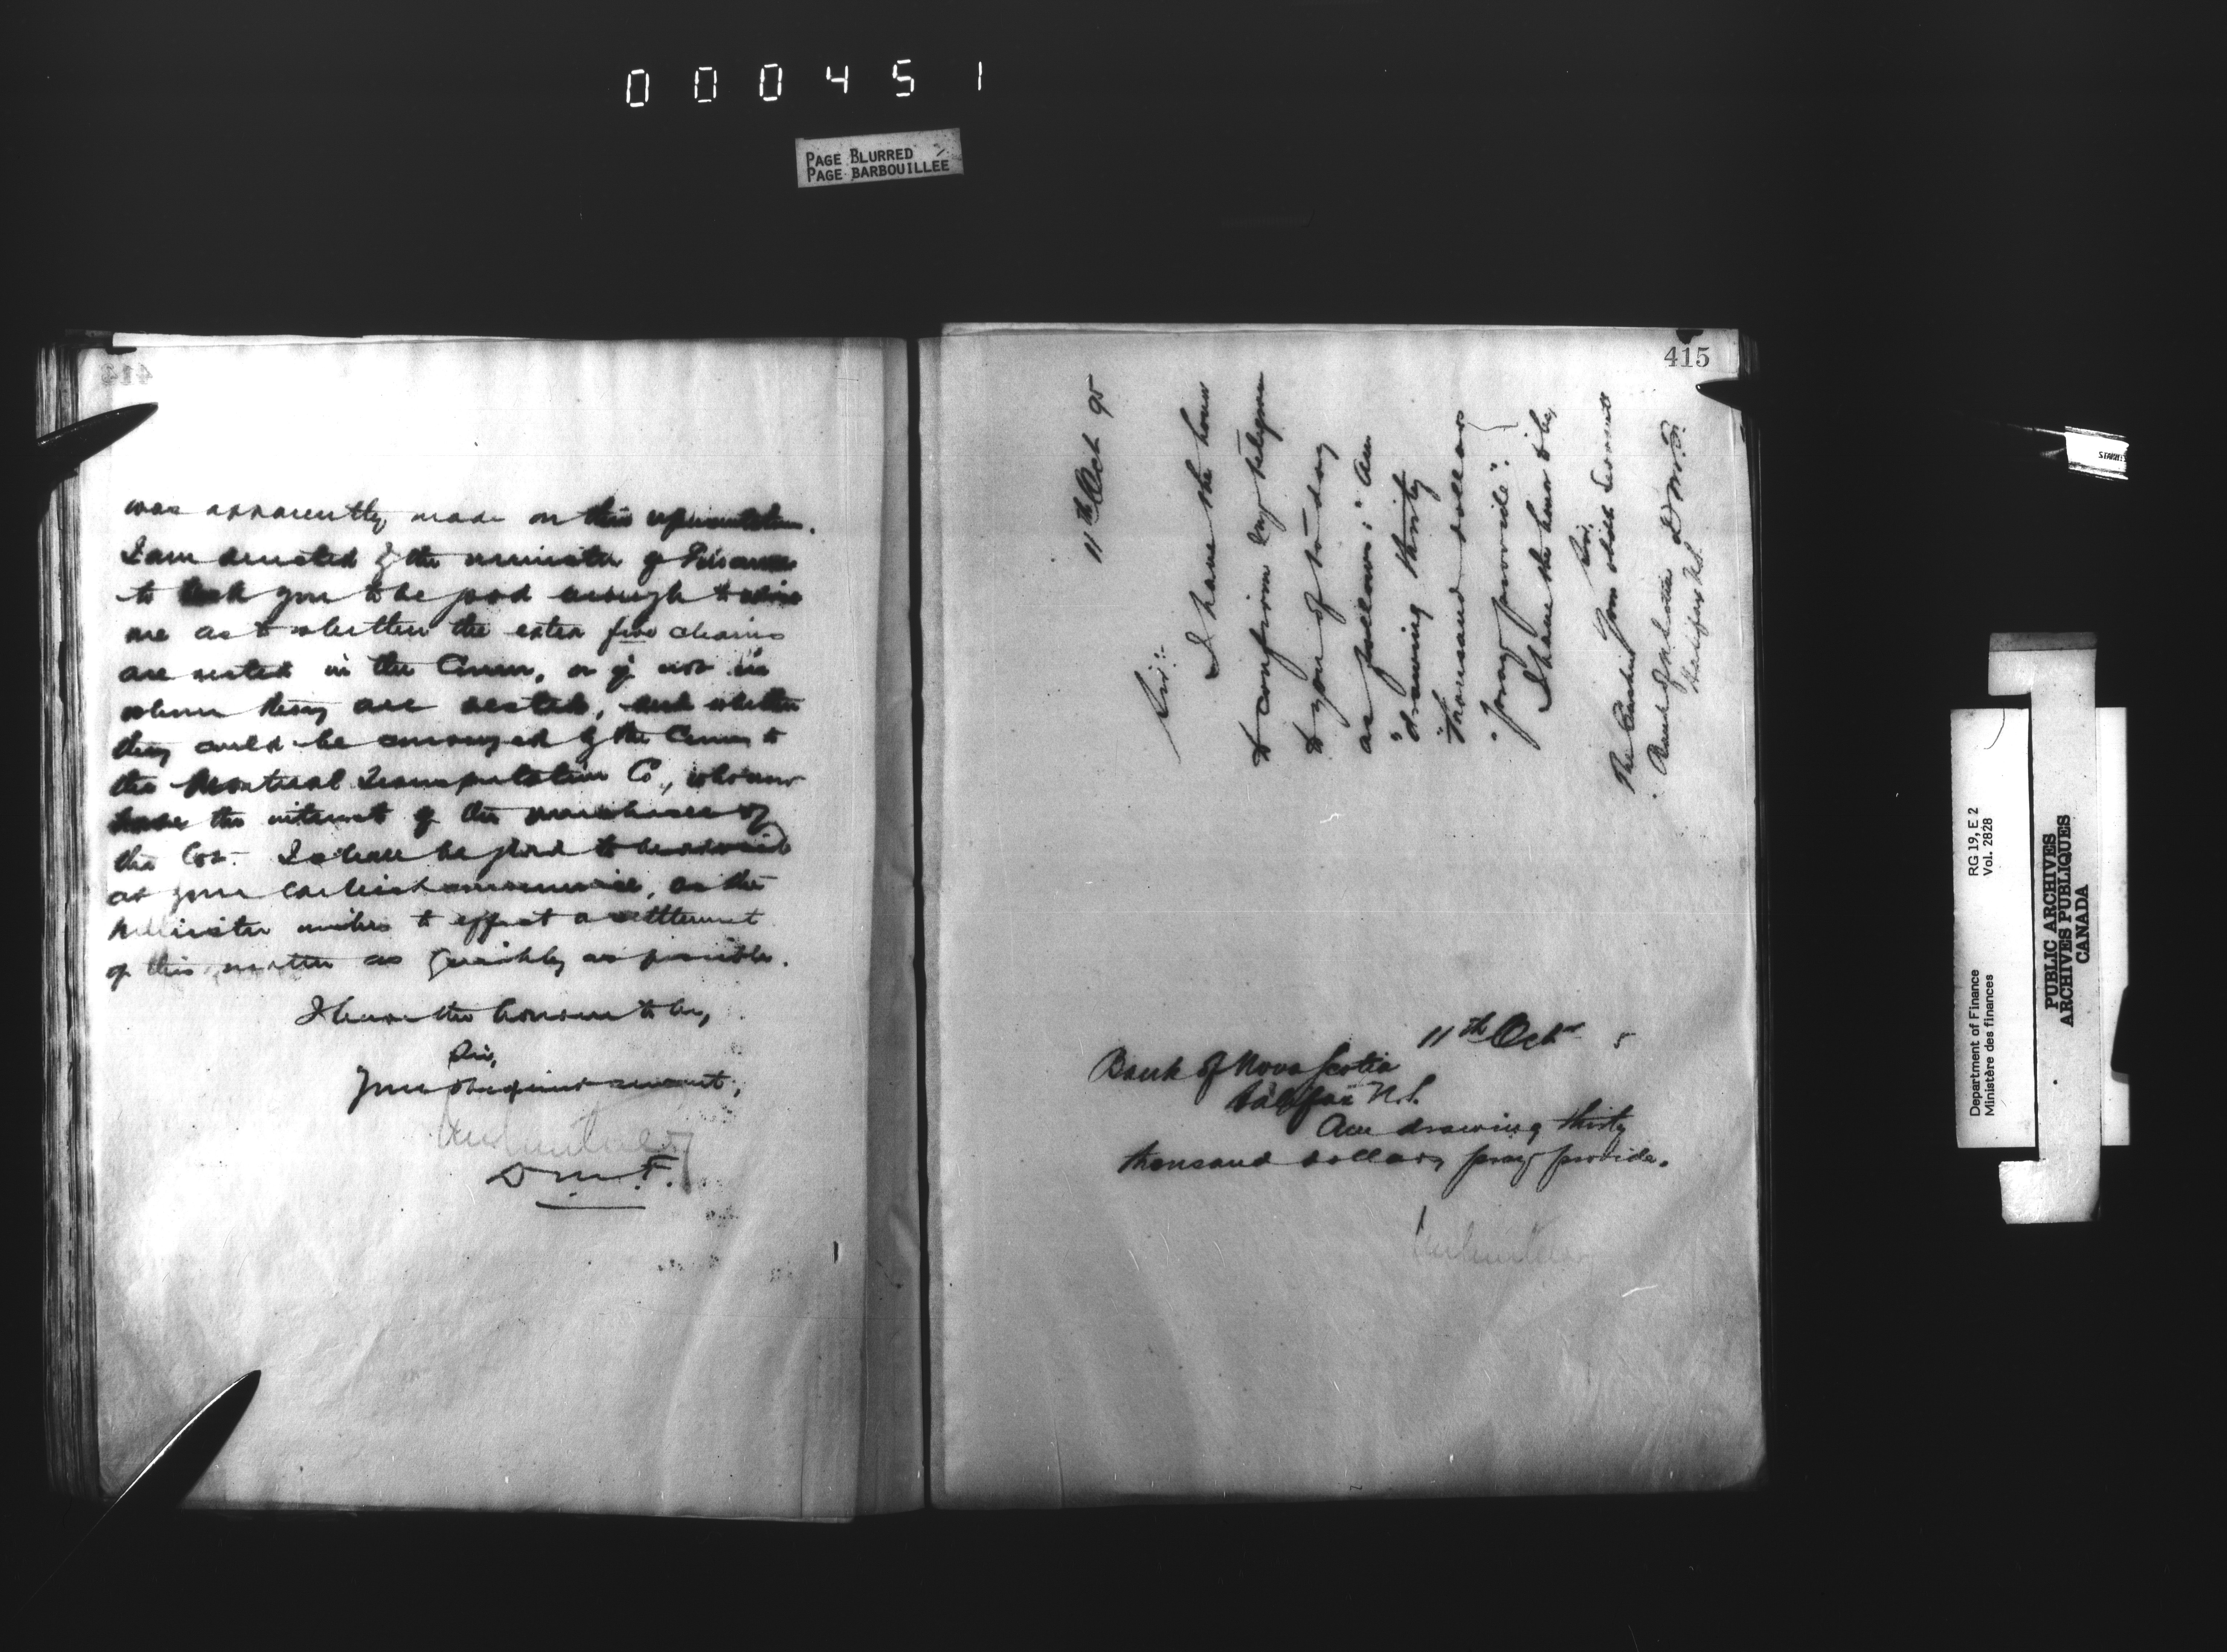 000451
PAGE BLURRED
PAGE BARBOUILLEE
414
was apparently made on this representation.
I am directed by the minister of Finance
to ask you to be good enough to advise
me as to whether the extra five chains
are vested in the Crown, or if not in
whom they are vested, and whether
they could be conveyed by the Crown to
the Montreal Transportation Co., who now
have the interest of the purchaser of
the lot. I shall be glad to be advised
at your earliest convenience, as the
Minister wishes to effect a settlement
of this matter as quickly as possible.
I have the honour to be,
Sir,
Your obedient servant,
D.M.F.
415
11th Oct 95
Sir:
I have the honor
to confirm my telegram
to you of to-day
as follows: "Am
"drawing thirty
"thousand dollars
"pray provide".
I have the honor to be,
Sir,
Your obdt Servant
D.M.F.
The Cashier
Bank of N. Scotia
Halifax N.S.
11th Oct 5
Bank of Nova Scotia
Halifax N.S.
Am drawing thirty
thousand dollars pray provide.
Department of Finance RG 19, E 2
Ministère des finances Vol. 2828
PUBLIC ARCHIVES
ARCHIVES PUBLIQUES
CANADA